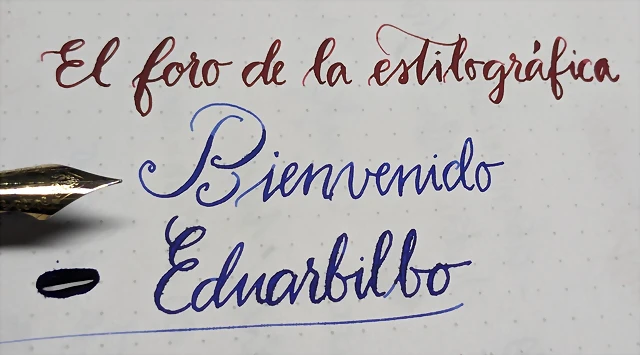 El foro de la estilográfica
Bienvenido
Eduarbilbo